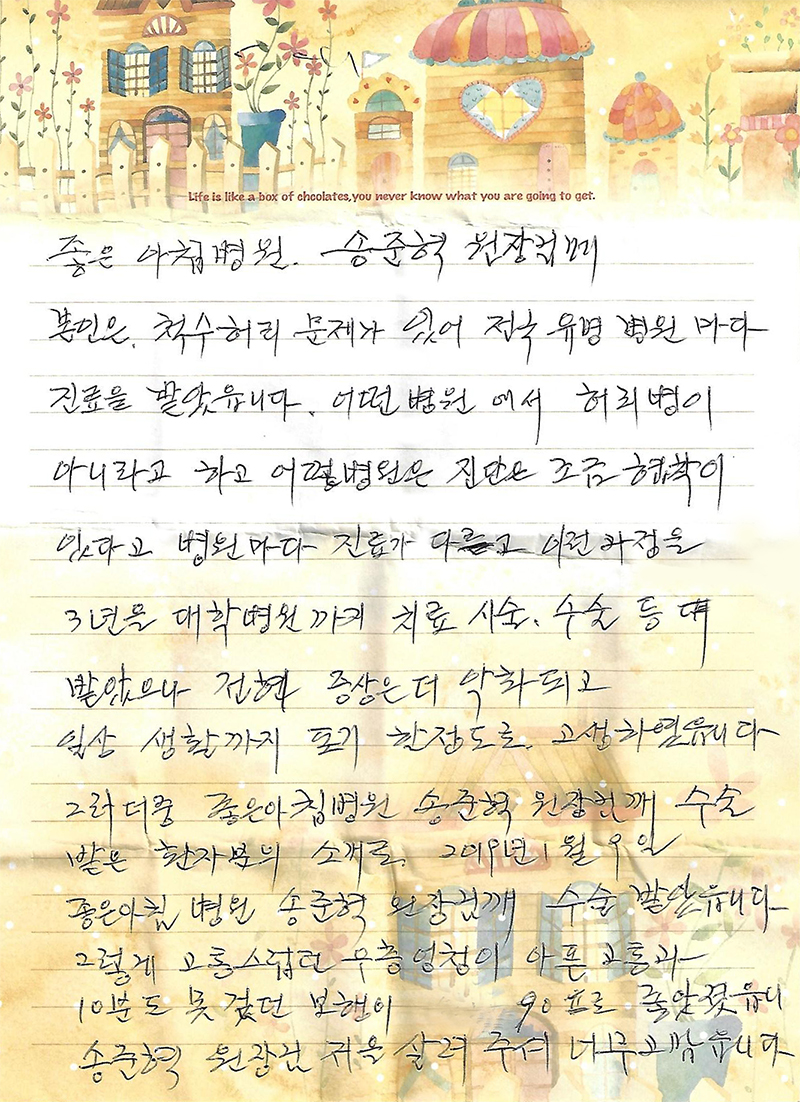 Life is like a box of chcolates,you never know what you are going to get.
좋은 아침병원. 송준혁 원장님께
본인은. 척수허리 문제가 있어 전국 유명 병원 마다
진료을 받았읍니다. 어떤병원 에서 허리병이
아니라고 하고 어떤병원은 진단은 조금 협착이
있다고 병원마다 진료가 다르고 이런과정을
3년을 대학병원까지 치료 시술. 수술 등
받았으나 전혀 증상은더 악화되고
일상 생활까지 포기 할정도로. 고생하였읍니다
그러더중 좋은아침병원 송준혁 원장님깨 수술
받은 환자분의 소개로. 2019년 1월 9일
좋은아침 병원 송준혁 원장님깨 수술 받았읍니다
그렇게 고통스럽던 엉청이 아픈 고통과
10분도 못걷던 보행이 90프로 좋았졌읍니
송준혁 원장님 저을 살려 주셔 너무고맙읍니다